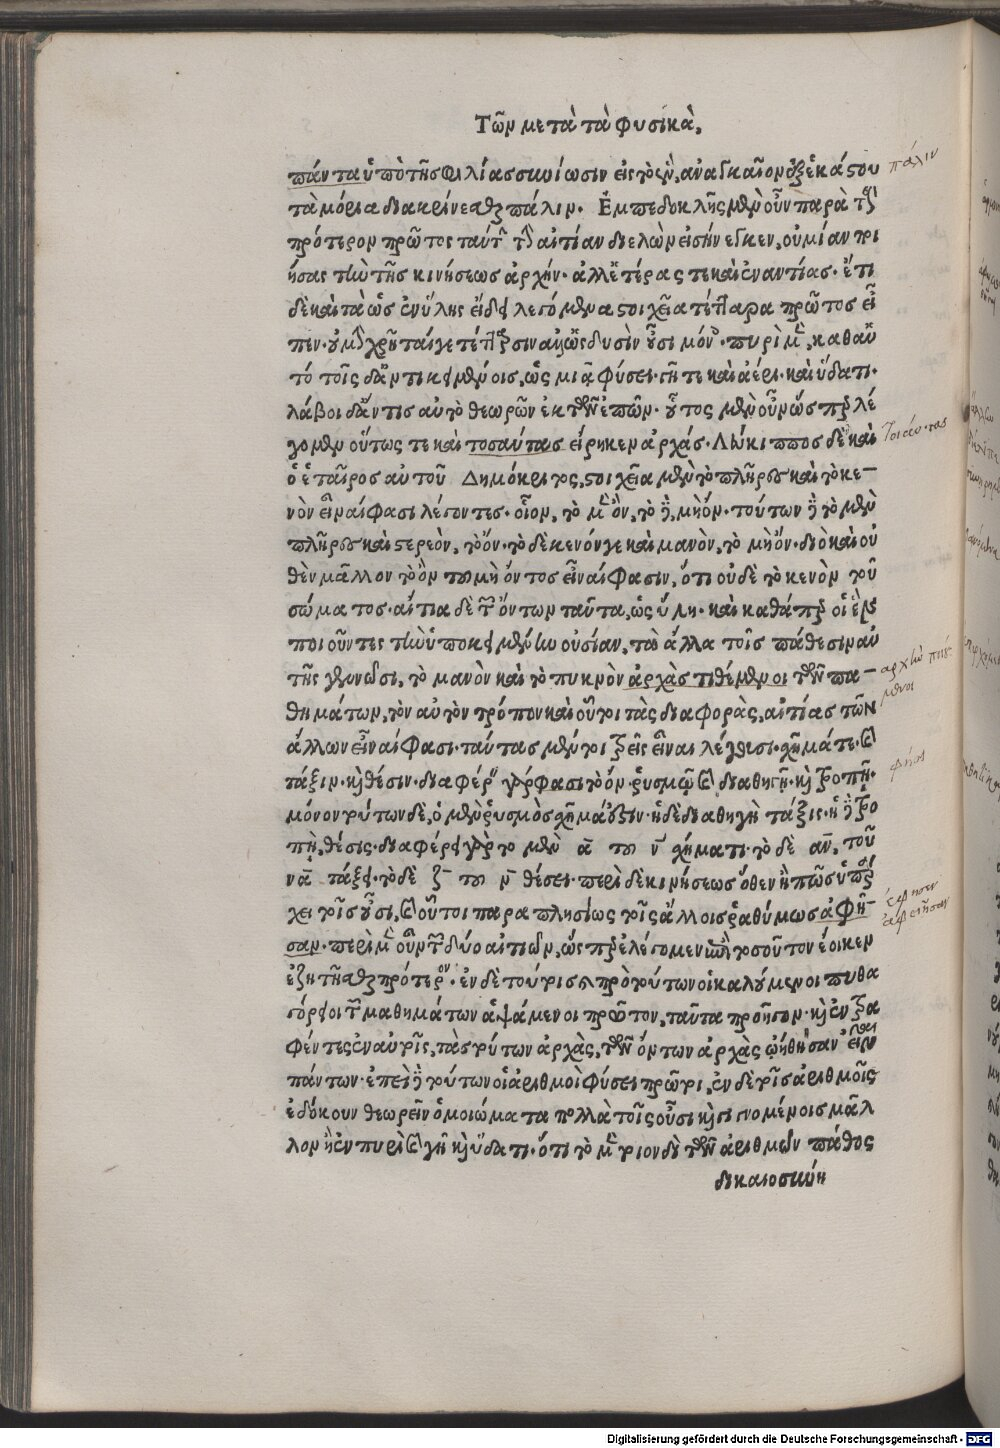 Τῶν μετὰ τὰ φυσικὰ.
πάντα ὑπὸ τῆς φιλίας συνίωσιν εἰς τὸ ἓν, ἀναγκαῖον ἐξ ἑκάστου
τὰ μόρια διακρίνεσθαι πάλιν. Ἐμπεδοκλῆς μὲν οὖν παρὰ τοὺς
πρότερον πρῶτος ταύτην τὴν αἰτίαν διελὼν εἰσήνεγκεν, οὐ μίαν ποι
ήσας τὴν τῆς κινήσεως ἀρχήν. ἀλλ' ἑτέρας τε καὶ ἐναντίας. ἔτι
δὲ καὶ τὰ ὡς ἐν ὕλης εἴδει λεγόμενα στοιχεῖα τέτταρα πρῶτος εἶ
πεν. οὐ μὴν χρῆταί γε τέτταρσιν ἀλλ' ὡς δυσὶν οὖσι μόνοις. πυρὶ μὲν, καθ' αὑ
τό τοῖς δ' ἀντικειμένοις, ὡς μιᾷ φύσει. γῇ τε καὶ ἀέρι. καὶ ὕδατι.
λάβοι δ' ἄν τις αὐτὸ θεωρῶν ἐκ τῶν ἐπῶν. οὗτος μὲν οὖν ὥσπερ λέ
γομεν οὕτως τε καὶ τοσαύτας εἴρηκεν ἀρχάς. Λεύκιππος δὲ καὶ
ὁ ἑταῖρος αὐτοῦ Δημόκριτος, στοιχεῖα μὲν τὸ πλῆρες καὶ τὸ κε-
νὸν εἶναί φασι λέγοντες. οἷον, τὸ μὲν ὄν, τὸ δὲ, μὴ ὄν. τούτων δὲ τὸ μὲν
πλῆρες καὶ στερεὸν, τὸ ὄν. τὸ δὲ κενόν γε καὶ μανὸν, τὸ μὴ ὄν. διὸ καὶ οὐ
θὲν μᾶλλον τὸ ὂν τοῦ μὴ ὄντος εἶναί φασιν, ὅτι οὐδὲ τὸ κενὸν τοῦ
σώματος. αἴτια δὲ τῶν ὄντων ταῦτα, ὡς ὕλη. καὶ καθάπερ οἱ ἓν
ποιοῦντες τὴν ὑποκειμένην οὐσίαν, τὰ ἄλλα τοῖς πάθεσιν αὐ
τῆς γεννῶσι, τὸ μανὸν καὶ τὸ πυκνὸν ἀρχὰς τιθέμενοι τῶν πα-
θημάτων, τὸν αὐτὸν τρόπον καὶ οὗτοι τὰς διαφορὰς, αἰτίας τῶν
ἄλλων εἶναί φασι. ταύτας μέντοι τρεῖς εἶναι λέγουσι. σχῆμά τε. καὶ
τάξιν. καὶ θέσιν. διαφέρειν γάρ φασι τὸ ὂν ῥυσμῷ καὶ διαθιγῇ. καὶ τροπῇ.
μόνον τούτων δὲ, ὁ μὲν ῥυσμὸς σχῆμά ἐστιν. ἡ δὲ διαθηγὴ τάξις. ἡ δὲ τρο
πὴ, θέσις. διαφέρει γὰρ τὸ μὲν α τοῦ ν σχήματι. τὸ δὲ αν, τοῦ
να τάξει. τὸ δὲ ζ τοῦ ν θέσει. περὶ δὲ κινήσεως ὅθεν ἢ πῶς ὑπάρ
χει τοῖς οὖσι, καὶ οὗτοι παραπλησίως τοῖς ἄλλοις ῥαθύμως ἀφεῖ-
σαν. περὶ μὲν οὖν τῶν δύο αἰτιῶν, ὥσπερ ἐλέγομεν ἐπὶ τοσοῦτον ἔοικεν
ἐζητῆσθαι πρότερον. ἐν δὲ τούτοις καὶ πρὸ τούτων οἱ καλούμενοι πυθα
γόρειοι τῶν μαθημάτων ἁψάμενοι πρῶτον, ταῦτα προῆγον. καὶ ἐντρα
φέντες ἐν αὐτοῖς, τὰς τούτων ἀρχὰς, τῶν ὄντων ἀρχὰς ᾠήθησαν εἶναι
πάντων. ἐπεὶ δὲ τούτων οἱ ἀριθμοὶ φύσει πρῶτοι, ἐν δὲ τοῖς ἀριθμοῖς
ἐδόκουν θεωρεῖν ὁμοιώματα πολλὰ τοῖς οὖσι καὶ γιγνομένοις μᾶλ
λον ἢ ἐν πυρὶ καὶ γῇ καὶ ὕδατι. ὅτι τὸ μὲν τοιονδὶ τῶν ἀριθμῶν πάθος
δικαιοσύνη
πάλιν
τοιαύτας
φησι
Digitalisierung gefördert durch die Deutsche Forschungsgemeinschaft - DFG